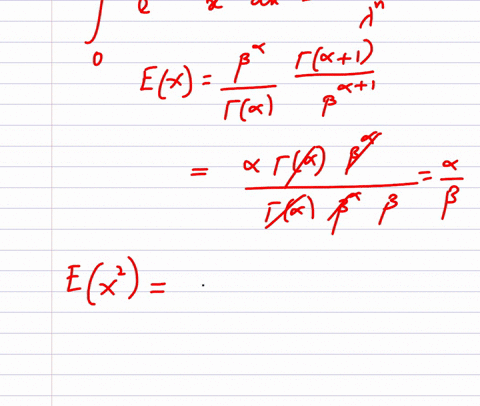 ∫₀ e x dx λⁿ
E(x) = β^α / Γ(α) Γ(α+1) / β^(α+1)
= α Γ(α) β^α / Γ(α) β^α β = α / β
E(x²) =